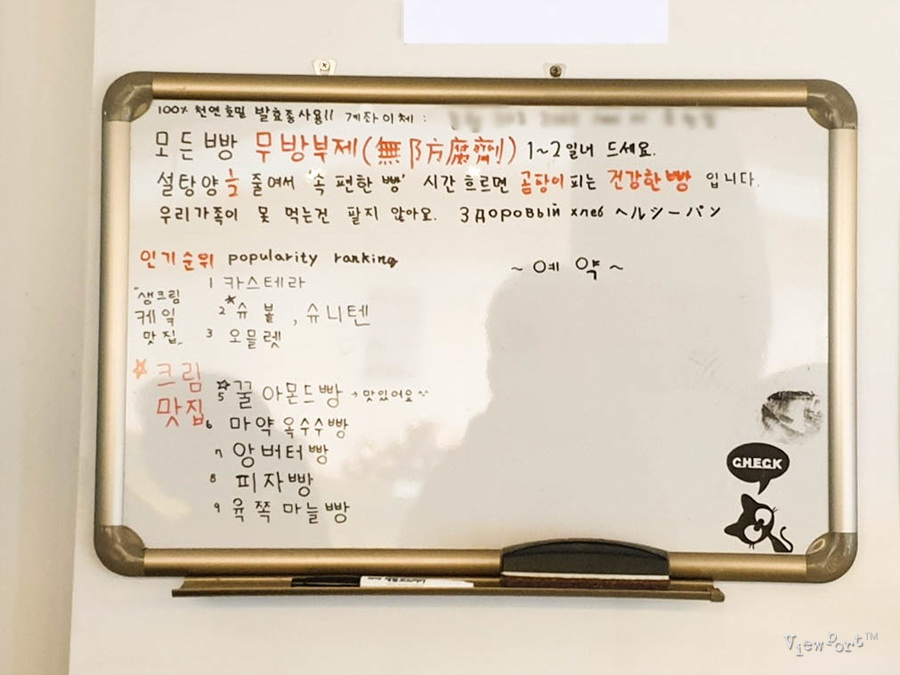 100% 천연호밀 발효종사용!! 계좌이체 :
모든빵 무방부제(無防腐劑) 1~2일내 드세요.
설탕양을 줄여서 '속 편한 빵' 시간 흐르면 곰팡이 피는 건강한빵 입니다.
우리가족이 못 먹는건 팔지 않아요. Здоровый хлеб ヘルシーパン
인기순위 popularity ranking
~ 예 약 ~
"생크림
케잌
맛집"
1 카스테라
2 ★슈 붙, 슈니텐
3 오믈렛
☆크림
맛집
5 ☆꿀 아몬드빵 → 맛있어요^^
6 마약 옥수수빵
7 앙버터빵
8 피자빵
9 육쪽 마늘빵
CHECK
ViewPort™